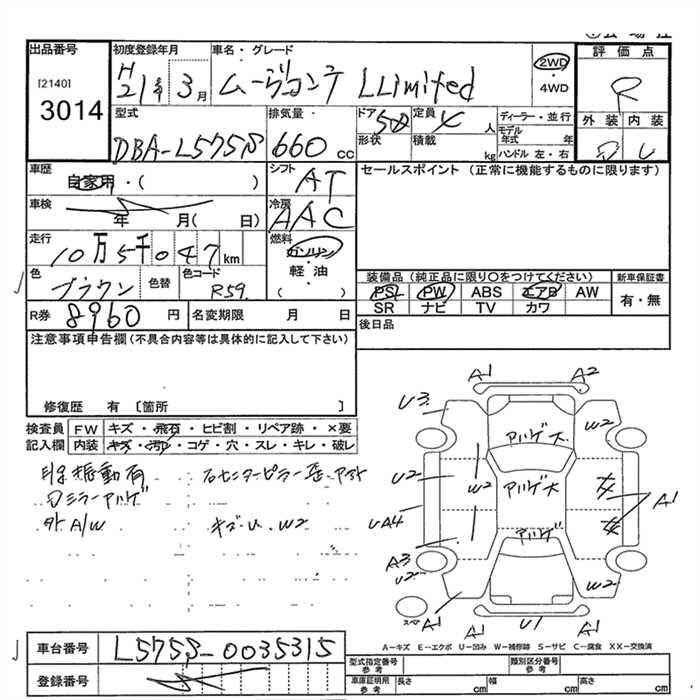 出品番号
[2140]
3014
初度登録年月
H21年 3月
車名・グレード
ムーヴコンテ L Limited
2WD
・
4WD
評価点
R
外装 内装
D
型式
DBA-L575S
排気量
660 cc
ドア
5D
形状
定員
4 人
積載
kg
ディーラー・並行
モデル年式 年
ハンドル 左・右
車歴
自家用・( )
シフト
AT
セールスポイント (正常に機能するものに限ります)
車検
年 月( 日)
冷房
AAC
走行
10万5千047 km
燃料
ガソリン
軽・油
( )
色
ブラウン
色替
色コード
R59
装備品 (純正品に限り○をつけてください)
新車保証書
PSL PW ABS エアB AW
有・無
SR ナビ TV カワ
R券
8960 円
名変期限 月 日
後日品
注意事項申告欄 (不具合内容等は具体的に記入して下さい)
修復歴 有 [箇所 ]
検査員
記入欄
FW キズ・飛石・ヒビ割・リペア跡・×要
内装 キズ・汚れ・コゲ・穴・スレ・キレ・破レ
振動有
ミラーアルゲ
外A/W
キズU.W2
A1 A2
U3 W2
アルゲ大
U2 W2
アルゲ大
A1
UA4
アルゲ
A3
U2 W2
スペア
A1 A1 U1 A1
A-キズ E-エクボ U-凹み W-補修跡 S-サビ C-腐食 XX-交換済
車台番号
L575S-0035315
登録番号
型式指定番号
参考
類別区分番号
参考
車庫証明用
参考
長さ cm
幅 cm
高さ cm